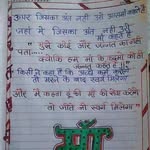 ऊपर जिसका अंत नहीं उसे आसमां कहते हैं
जहाँ में जिसका अंत नहीं उसे
माँ कहते हैं
" मुझे कोई और जन्नत का नहीं
पता....
क्योंकि हम माँ के कदमों को ही
जन्नत कहते हैं !!
किसी ने कहा है कि अच्छे कर्म करने
से मरने के बाद स्वर्ग मिलेगा
और मैं कहता हूँ की माँ की सेवा करोगे
तो जीते जी स्वर्ग मिलेगा "
माँ